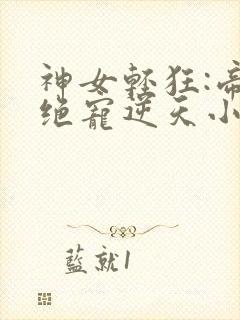 神女轻狂:帝
绝宠逆天小
藍就1